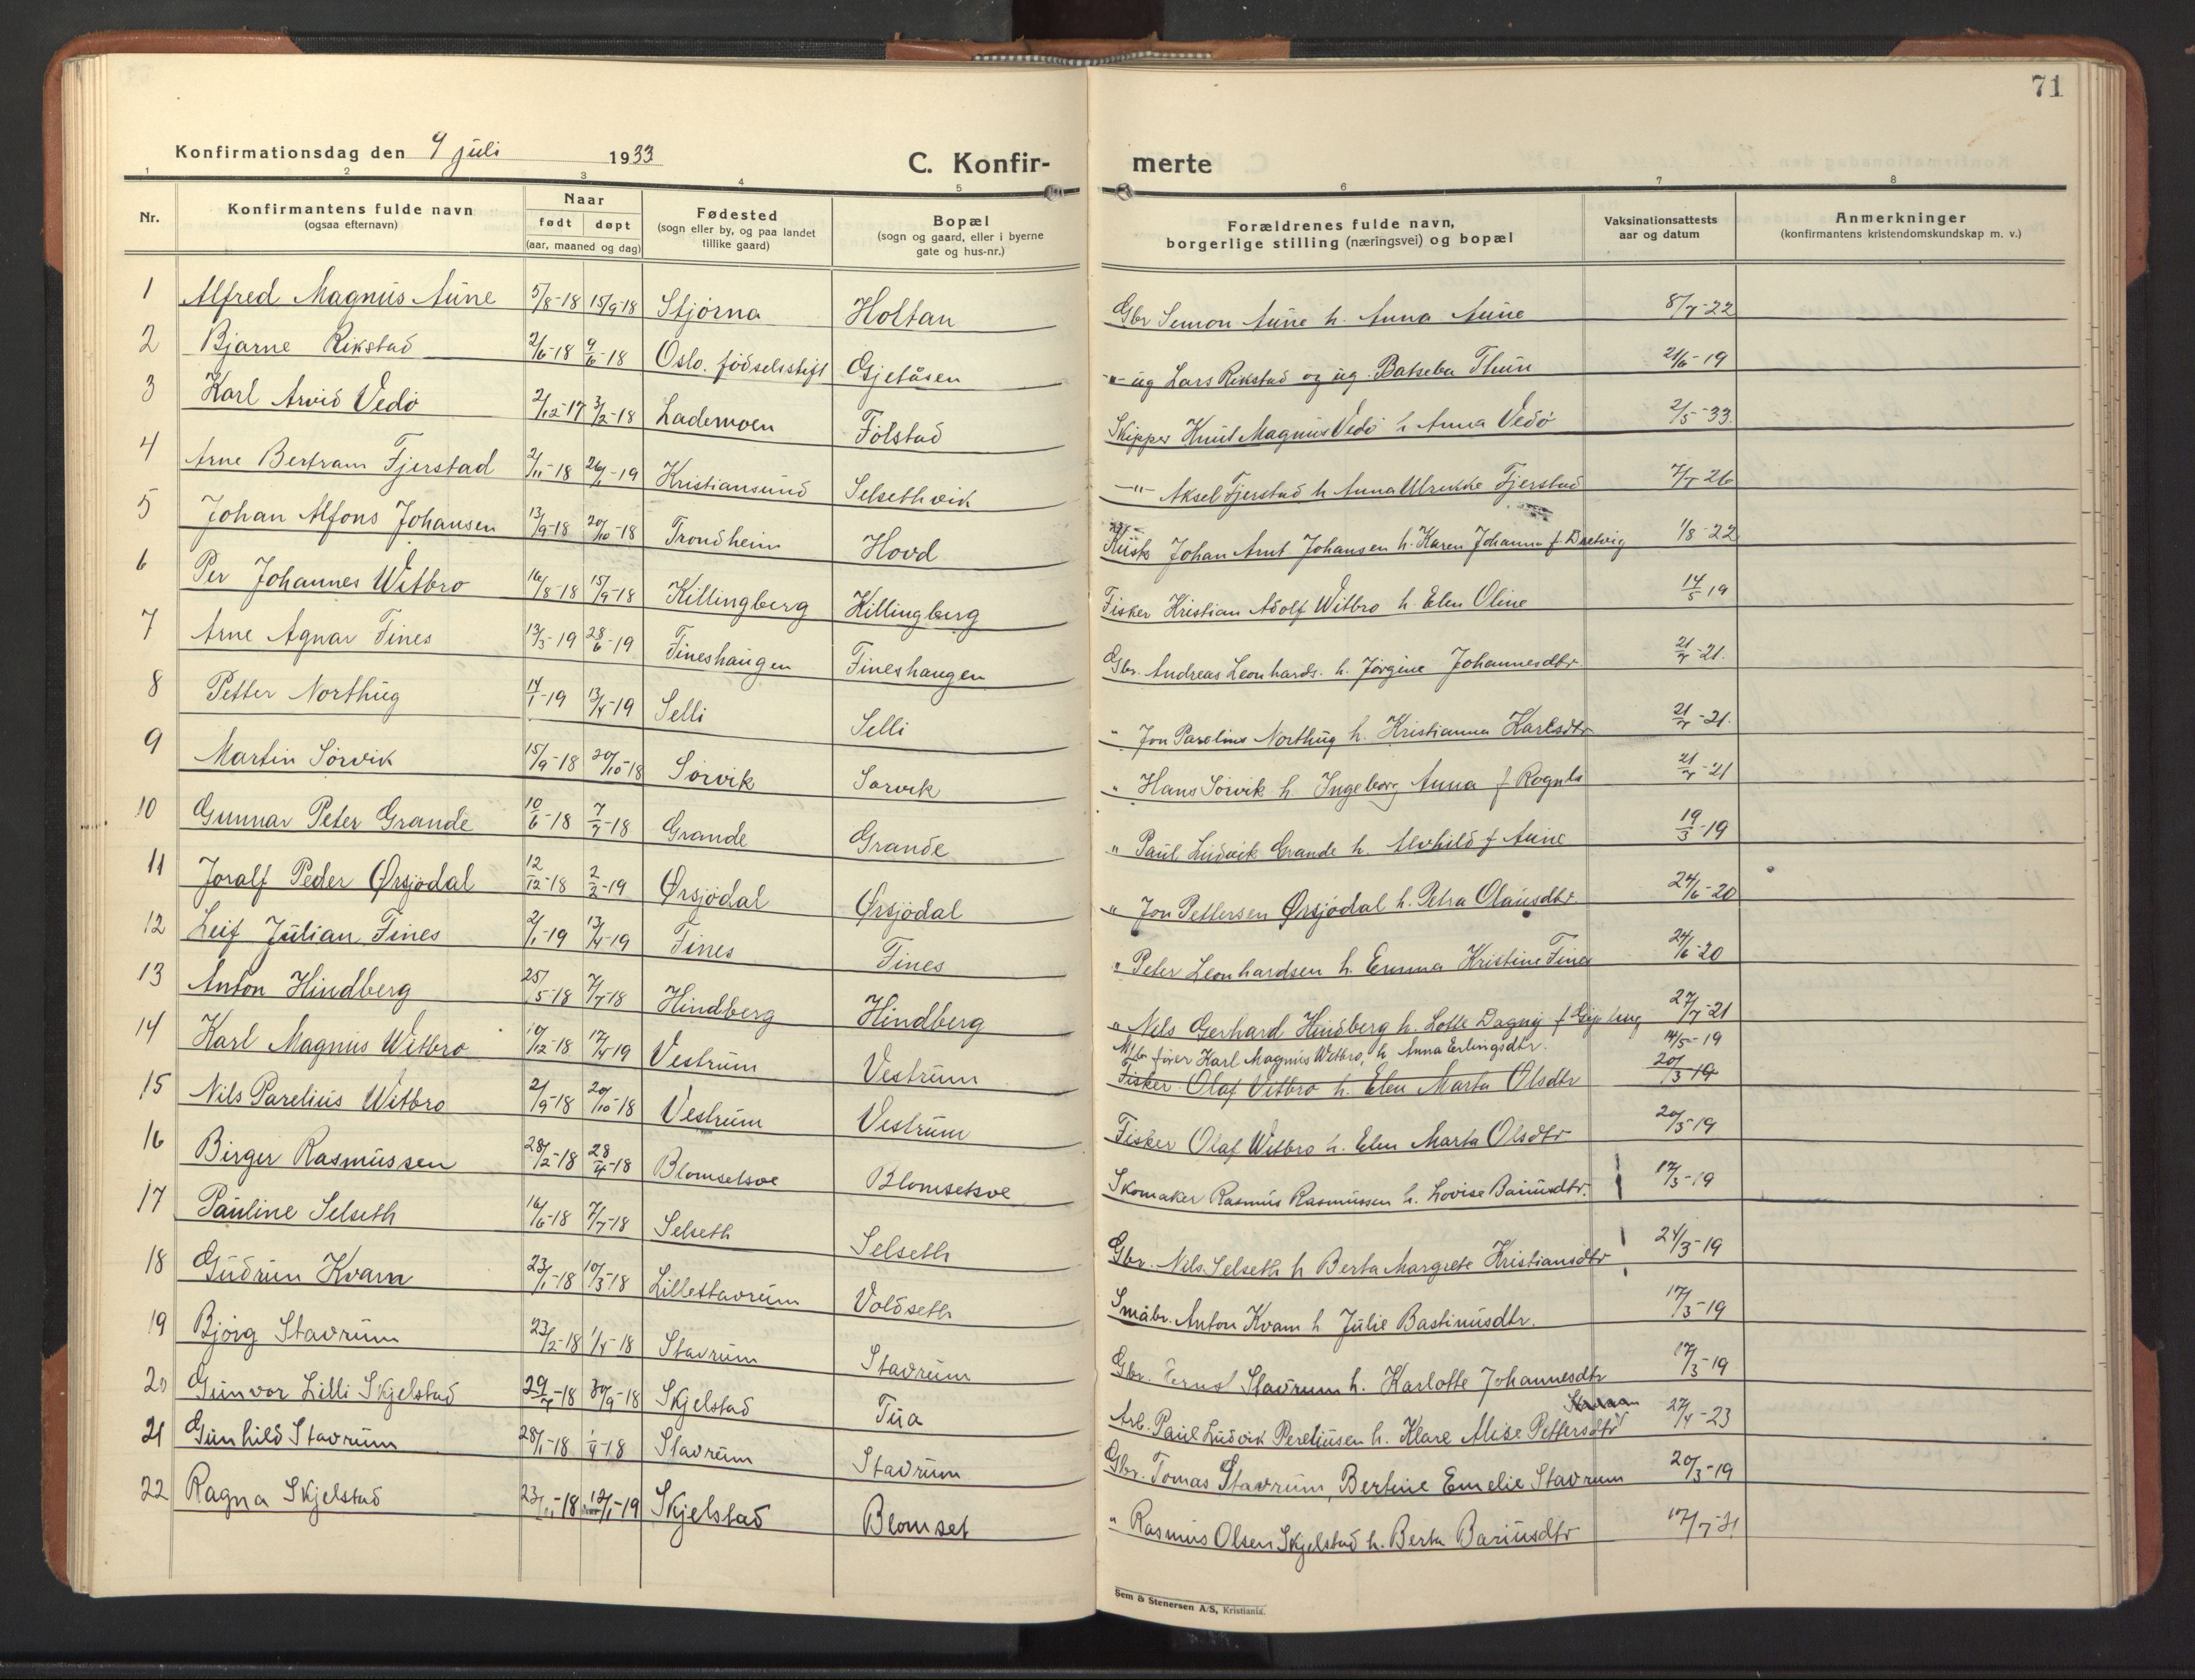 71
Konfirmationsdag den 9 juli 1933
C. Konfir- merte
1 2 3 4 5 6 7 8
Nr.
Konfirmantens fulde navn
(ogsaa efternavn)
Naar
født døpt
(aar, maaned og dag)
Fødested
(sogn eller by, og paa landet
tillike gaard)
Bopæl
(sogn og gaard, eller i byerne
gate og hus-nr.)
Forældrenes fulde navn,
borgerlige stilling (næringsvei) og bopæl
Vaksinationsattests
aar og datum
Anmerkninger
(konfirmantens kristendomskundskap m. v.)
1 Alfred Magnus Aune 5/8-18 15/9-18 Stjørna Holtan Gbr Semon Aune h. Anna Aune 8/7-22
2 Bjarne Rikstad 2/6-18 9/6-18 Oslo. fødselsstift Gjetåsen -"- ug Lars Rikstad og ug. Batseba Thun 21/6-19
3 Karl Arvid Vedø 2/12-17 3/2-18 Lademoen Følstad Skipper Knut Magnus Vedø h Anna Vedø 2/5-33
4 Arne Bertram Fjerstad 2/11-18 26/1-19 Kristiansund Selsethvik -"- Aksel Fjerstad h Anna Ulrikke Fjerstad 7/7-26
5 Johan Alfons Johansen 13/9-18 20/10-18 Trondheim Hovd Johan Arnt Johansen h. Karen Johanna f. 1/8-22
6 Per Johannes Witbro 16/8-18 15/9-18 Killingberg Killingberg Fisker Kristian Adolf Witbro h. Elen Oline 14/5-19
7 Arne Agnar Fines 13/3-19 28/6-19 Fineshaugen Fineshaugen Gbr. Andreas Leonhards. h. Jørgine Johannesdtr 21/7-21.
8 Petter Northug 14/1-19 13/4-19 Selli Selli " Jon Parelius Northug h. Kristianna Karlsdtr 21/7-21.
9 Martin Sørvik 15/9-18 20/10-18 Sørvik Sørvik " Hans Sørvik h. Ingeborg Anna f Rognli 21/7-21
10 Gunnar Peter Grande 10/6-18 7/7-18 Grande Grande " Paul Ludvik Grande h. Alvhild f Aune 19/3-19
11 Joralf Peder Ørsjødal 12/12-18 2/2-19 Ørsjødal Ørsjødal " Jon Pettersen Ørsjødal h. Petra Olausdtr 24/6-20
12 Leif Julian Fines 2/1-19 13/4-19 Fines Fines " Peter Leonhardsen h. Emma Kristine Fines 24/6-20
13 Anton Hindberg 25/5-18 7/7-18 Hindberg Hindberg " Nils Gerhard Hindberg h. Lotte Dagny f 27/7-21
14 Karl Magnus Witbro 10/12-18 17/4-19 Vestrum Vestrum fører Karl Magnus Witbro, h Anna Erlingsdtr. 14/5-19
Fisker Olaf Vitbro h. Elen Marta Olsdtr 20/3-19
15 Nils Parelius Witbro 2/9-18 20/10-18 Vestrum Vestrum Fisker Olaf Witbro h. Elen Marta Olsdtr 20/3-19
16 Birger Rasmussen 28/2-18 28/4-18 Blomsetsve Blomsetsve Skomaker Rasmus Rasmussen h. Lovise Bariusdtr. 17/3-19
17 Pauline Selseth 16/6-18 7/7-18 Selseth Selseth Gbr. Nils Selseth h Berta Margrete Kristiansdtr 24/3-19
18 Gudrun Kvam 23/1-18 10/3-18 Lillestavrum Voldseth Småbr. Anton Kvam h Julie Bastinusdtr. 17/3-19
19 Bjørg Stavrum 23/2-18 1/4-18 Stavrum Stavrum Gbr. Ernst Stavrum h. Karlotte Johannesdtr 17/3-19
20 Gunvor Lilli Skjelstad 29/7-18 30/9-18 Skjelstad Tua Arb. Paul Ludvik Pereliusen h. Klare Alise Pettersdtr 27/4-23
21 Gunhild Stavrum 28/1-18 1/4-18 Stavrum Stavrum Gbr. Tomas Stavrum, Bertine Emelie Stavrum 20/3-19
22 Ragna Skjelstad 23/11-18 12/1-19 Skjelstad Blomset " Rasmus Olsen Skjelstad h. Berta Bariusdtr 17/7-21
Sem & Stenersen A/S, Kristiania.